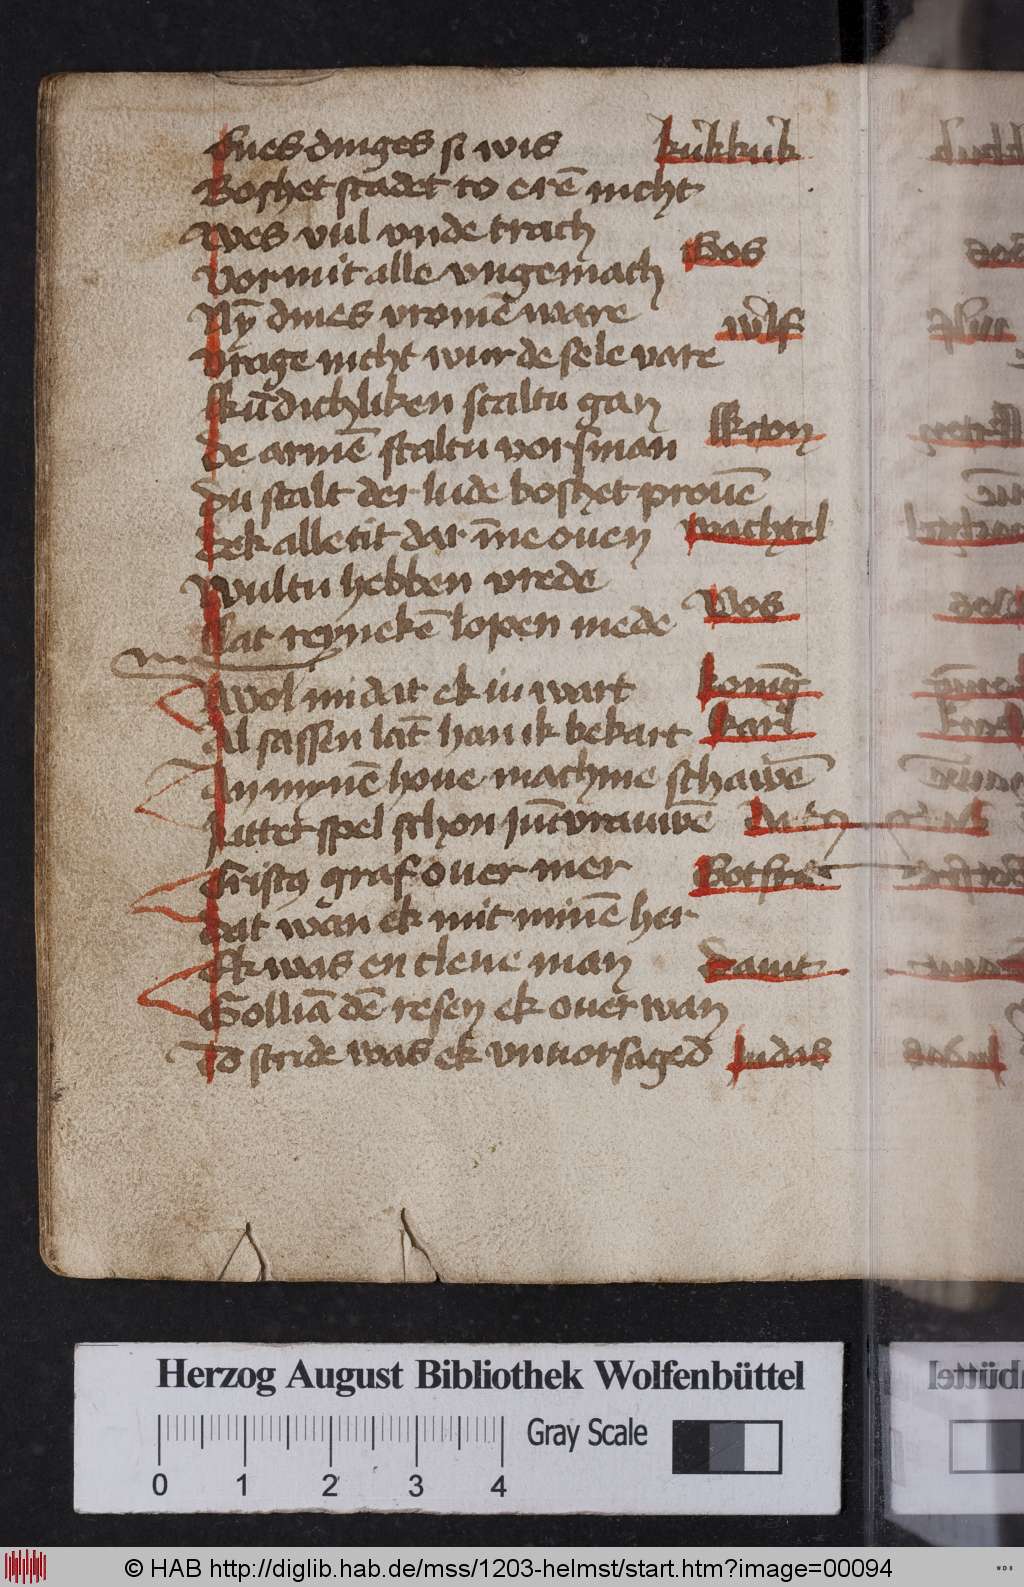 Enes dinges si wis kukkuk
Boshet scadet to erē nicht
Wes vul vnde trach
Vormit alle vngemach Vos
Ny dines vromē ware wlf
Vrage nicht wur de sele vare
skudichliken scaltu gan
de armē scaltu vorsman
du scalt der lude boshet prouē
Dek alle tit dar īne ouen wachtel
Wultu hebben vrede
Lat reynekē lopen mede Vos
Wol mi dat ek iu wart konig
Al sassen lāt han ik bekart karl
In mynē houe machme schawē
Ridder spel schon jūcvrauwē
Cristꝰ graf ouer mer Botfrid
dat wan ek mit minē her
Ek was en clene man Dauit
Golliā dē resen ek ouer wan
To stride was ek vnuorsaged Judas
Herzog August Bibliothek Wolfenbüttel
Gray Scale
0 1 2 3 4
© HAB http://diglib.hab.de/mss/1203-helmst/start.htm?image=00094